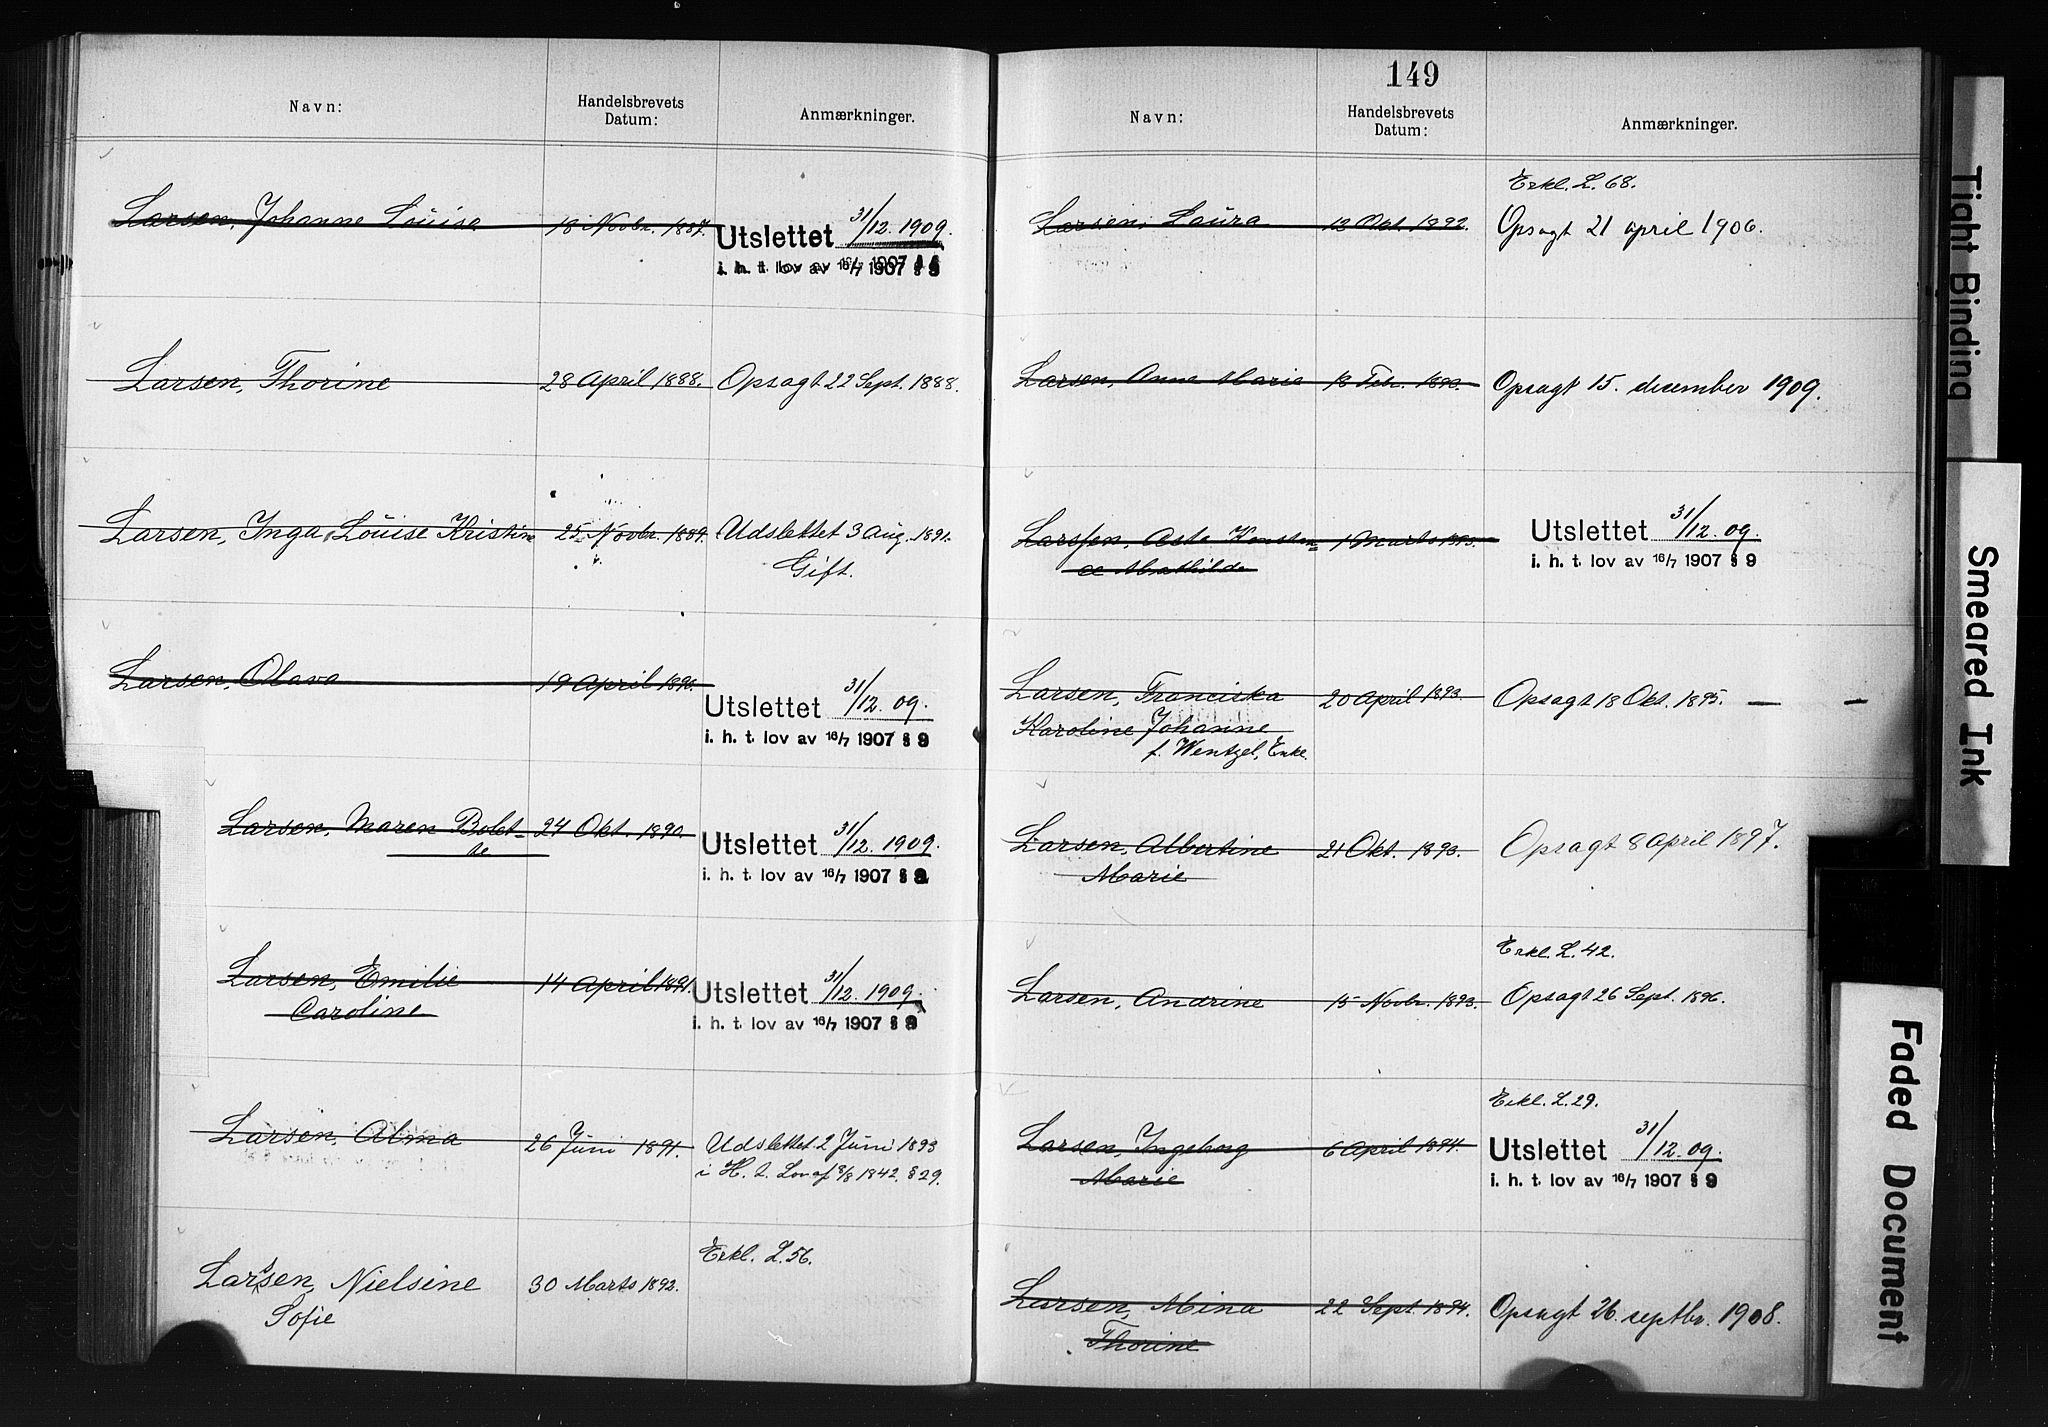 Navn:
Handelsbrevets
Datum:
Anmærkninger.
Larsen, Johanne Louisa
18 Novbr. 1887.
Utslettet 31/12. 1909.
i. h. t. lov av 16/7 1907 § 9
Larsen, Thorine
28 April 1888.
Opsagt 22 Sept. 1888.
Larsen, Inga Louise Kristine
25 Novbr. 1889.
Udslettet 3 Aug. 1891.
Gift.
Larsen, Olava
19 April 1890.
Utslettet 31/12. 09.
i. h. t. lov av 16/7 1907 § 9
Larsen, Maren Bolet-
te
24 Okt. 1890.
Utslettet 31/12. 1909.
i. h. t. lov av 16/7 1907 § 9
Larsen, Emilie
Caroline
14 April 1891.
Utslettet 31/12. 1909.
i. h. t. lov av 16/7 1907 § 9
Larsen, Alma
26 Juni 1891.
Udslettet 2 Juni 1893
i H. t. Lov af 8/8 1842. § 29.
Larssen, Nielsine
Sofie
30 Marts 1892.
Erkl. L. 56.
149
Navn:
Handelsbrevets
Datum:
Anmærkninger.
Larsen, Laura
13 Okt. 1892.
Erkl. L. 68.
Opsagt 21 april 1906.
Larsen, Anna Marie
18 Febr.
Opsagt 15. december 1909.
Larssen, Asta
Mathilde
1 Marts 1893.
Utslettet 31/12. 09.
i. h. t. lov av 16/7 1907 § 9
Larsen, Franciska
Karoline Johanne
f. Wentzel, Enke.
20 April 1893.
Opsagt 18 Okt. 1895.
Larsen, Albertine
Marie
21 Okt. 1893.
Opsagt 8 April 1897.
Larsen, Andrine
15 Novbr. 1893.
Erkl. L. 42.
Opsagt 26 Sept. 1896.
Larsen, Ingeborg
Marie
6 April 1894.
Erkl. L. 29.
Utslettet 31/12. 09.
i. h. t. lov av 16/7 1907 § 9
Larsen, Mina
Thorine
22 Sept. 1894.
Opsagt 26. septbr. 1908.
Tight Binding
Smeared Ink
Faded Document